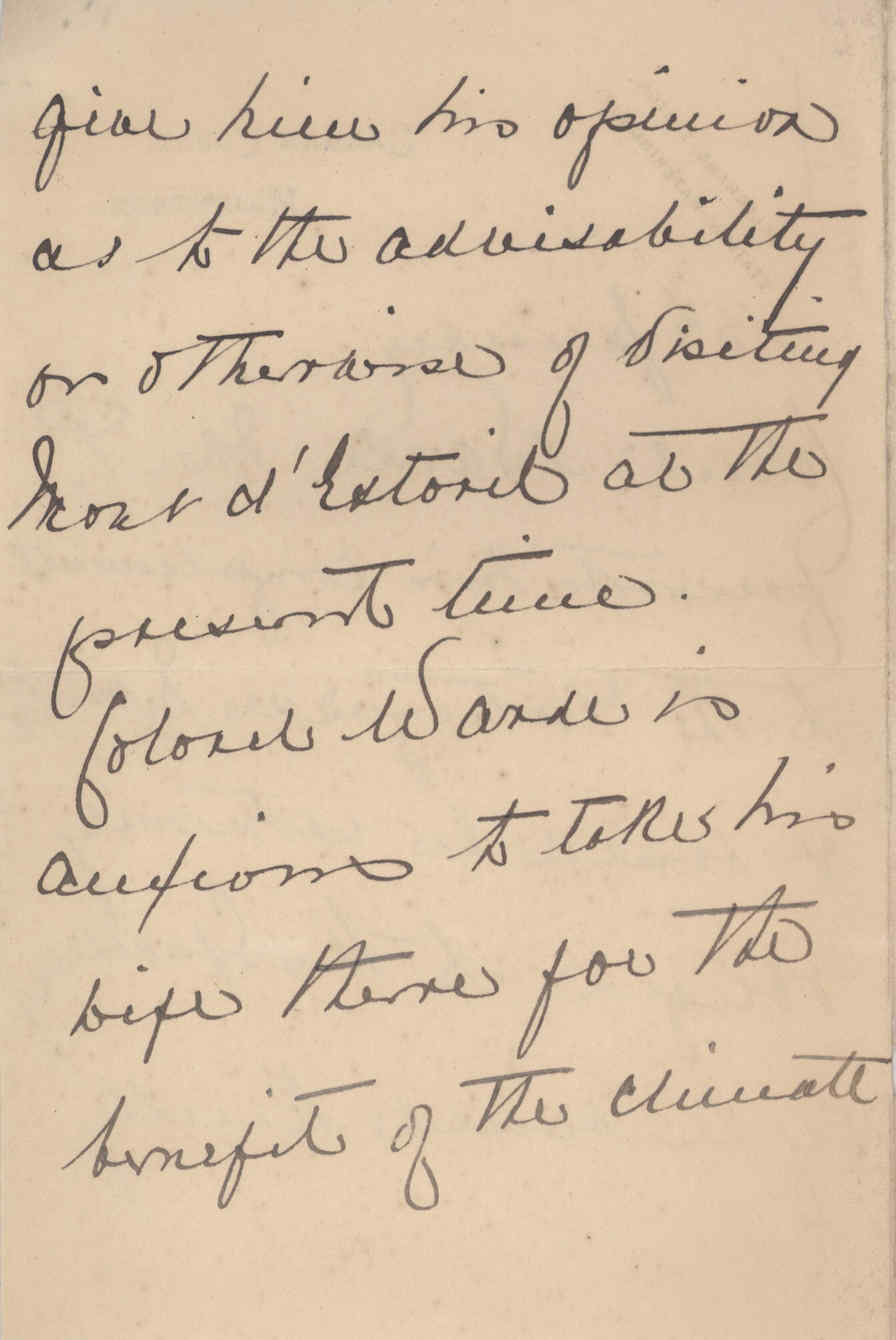 give him his opinion
as to the advisability
or otherwise of visiting
Mont d'Estoril at the
present time.
Colonel Warde is
anxious to take his
wife there for the
benefit of the climate